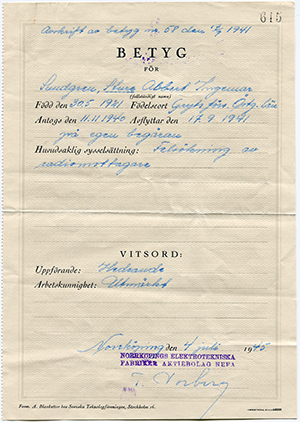 615
Avskrift av betyg nr. 58 den 18/9 1941
BETYG
FÖR
Sundgren, Sture Albert Ingemar
(fullständigt namn)
Född den 30.5 1921 Födelseort Gryts förs. Östg. län
Antogs den 11.11 1940 Avflyttar den 17.9 1941
på egen begäran
Huvudsaklig sysselsättning: Felsökning av
radiomottagare
VITSORD:
Uppförande: Hedrande
Arbetskunnighet: Utmärkt
Norrköping den 4 juli 1945
NORRKÖPINGS ELEKTROTEKNISKA
FABRIKER AKTIEBOLAG NEFA
T. Norberg
Form. A. Blanketter hos Svenska Teknologföreningen, Stockholm 16.